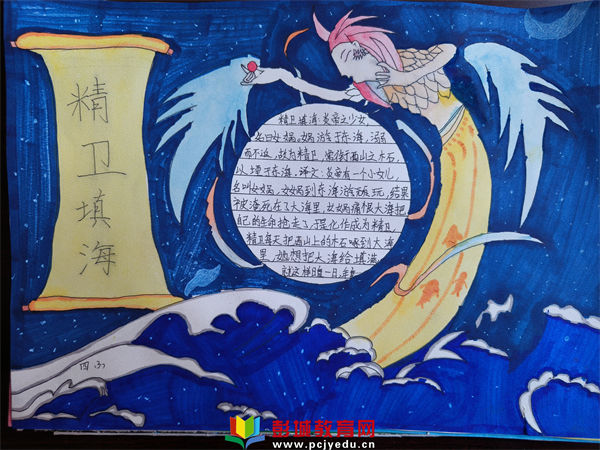 精卫填海
精卫填海:炎帝之少女,
名曰女娲,女娲游于东海,溺
而不返,故为精卫,常衔西山之木石,
以堙于东海,译文:炎帝有一个小女儿
名叫女娲,女娲到东海游玩,结果
被淹死在了大海里,女娲痛恨大海把
自己的生命抢走了,现化作成为精卫,
精卫每天把西山上的木石啄到大海
里,她想把大海给填满,
就这样日复一日,年复
四(3)
彭城教育网
www.pcjyedu.cn